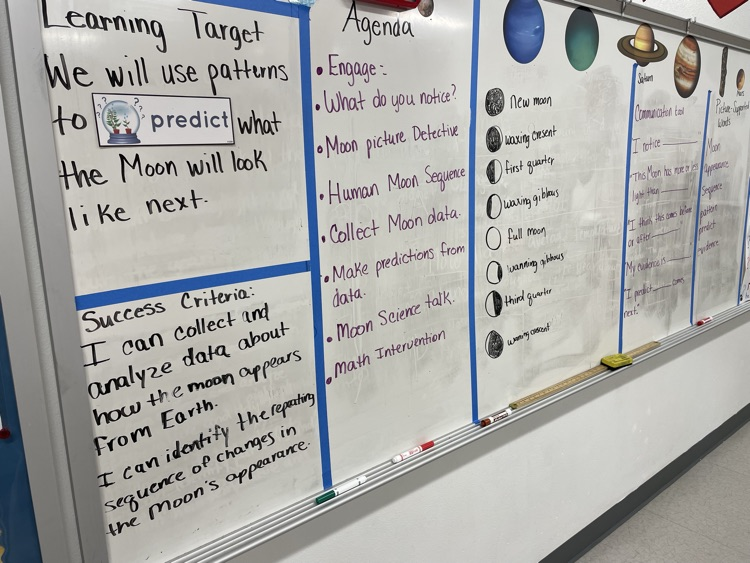 Learning Target
We will use patterns
to predict what
the Moon will look
like next.
Success Criteria:
I can collect and
analyze data about
how the moon appears
from Earth.
I can identify the repeating
sequence of changes in
the Moon's appearance.
Agenda
• Engage:
• What do you notice?
• Moon picture Detective
• Human Moon Sequence
• Collect Moon data.
• Make predictions from
data.
• Moon Science talk.
• Math Intervention
new moon
waxing cresent
first quarter
waxing gibbous
full moon
wanning gibbous
third quarter
waning cresent
Saturn
Communication tool
I notice
This Moon has more or less
light than
I think this comes before
or after
My evidence is
I predict comes
next."
Mars
Picture-Supported
Words
Moon
Appearance
Sequence
pattern
predict
evidence